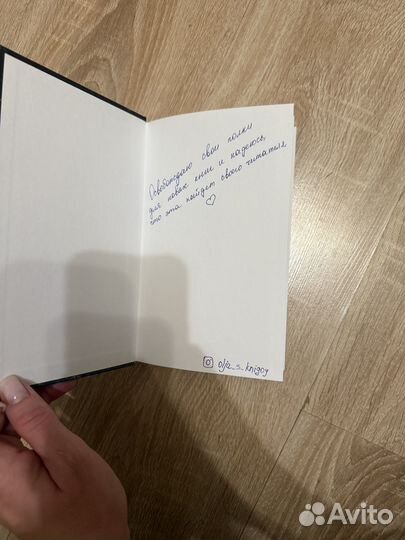 Освобождаю свои полки
для новых книг и надеюсь
что эта найдет своего читателя
♡
olja_s_knigoy
Avito